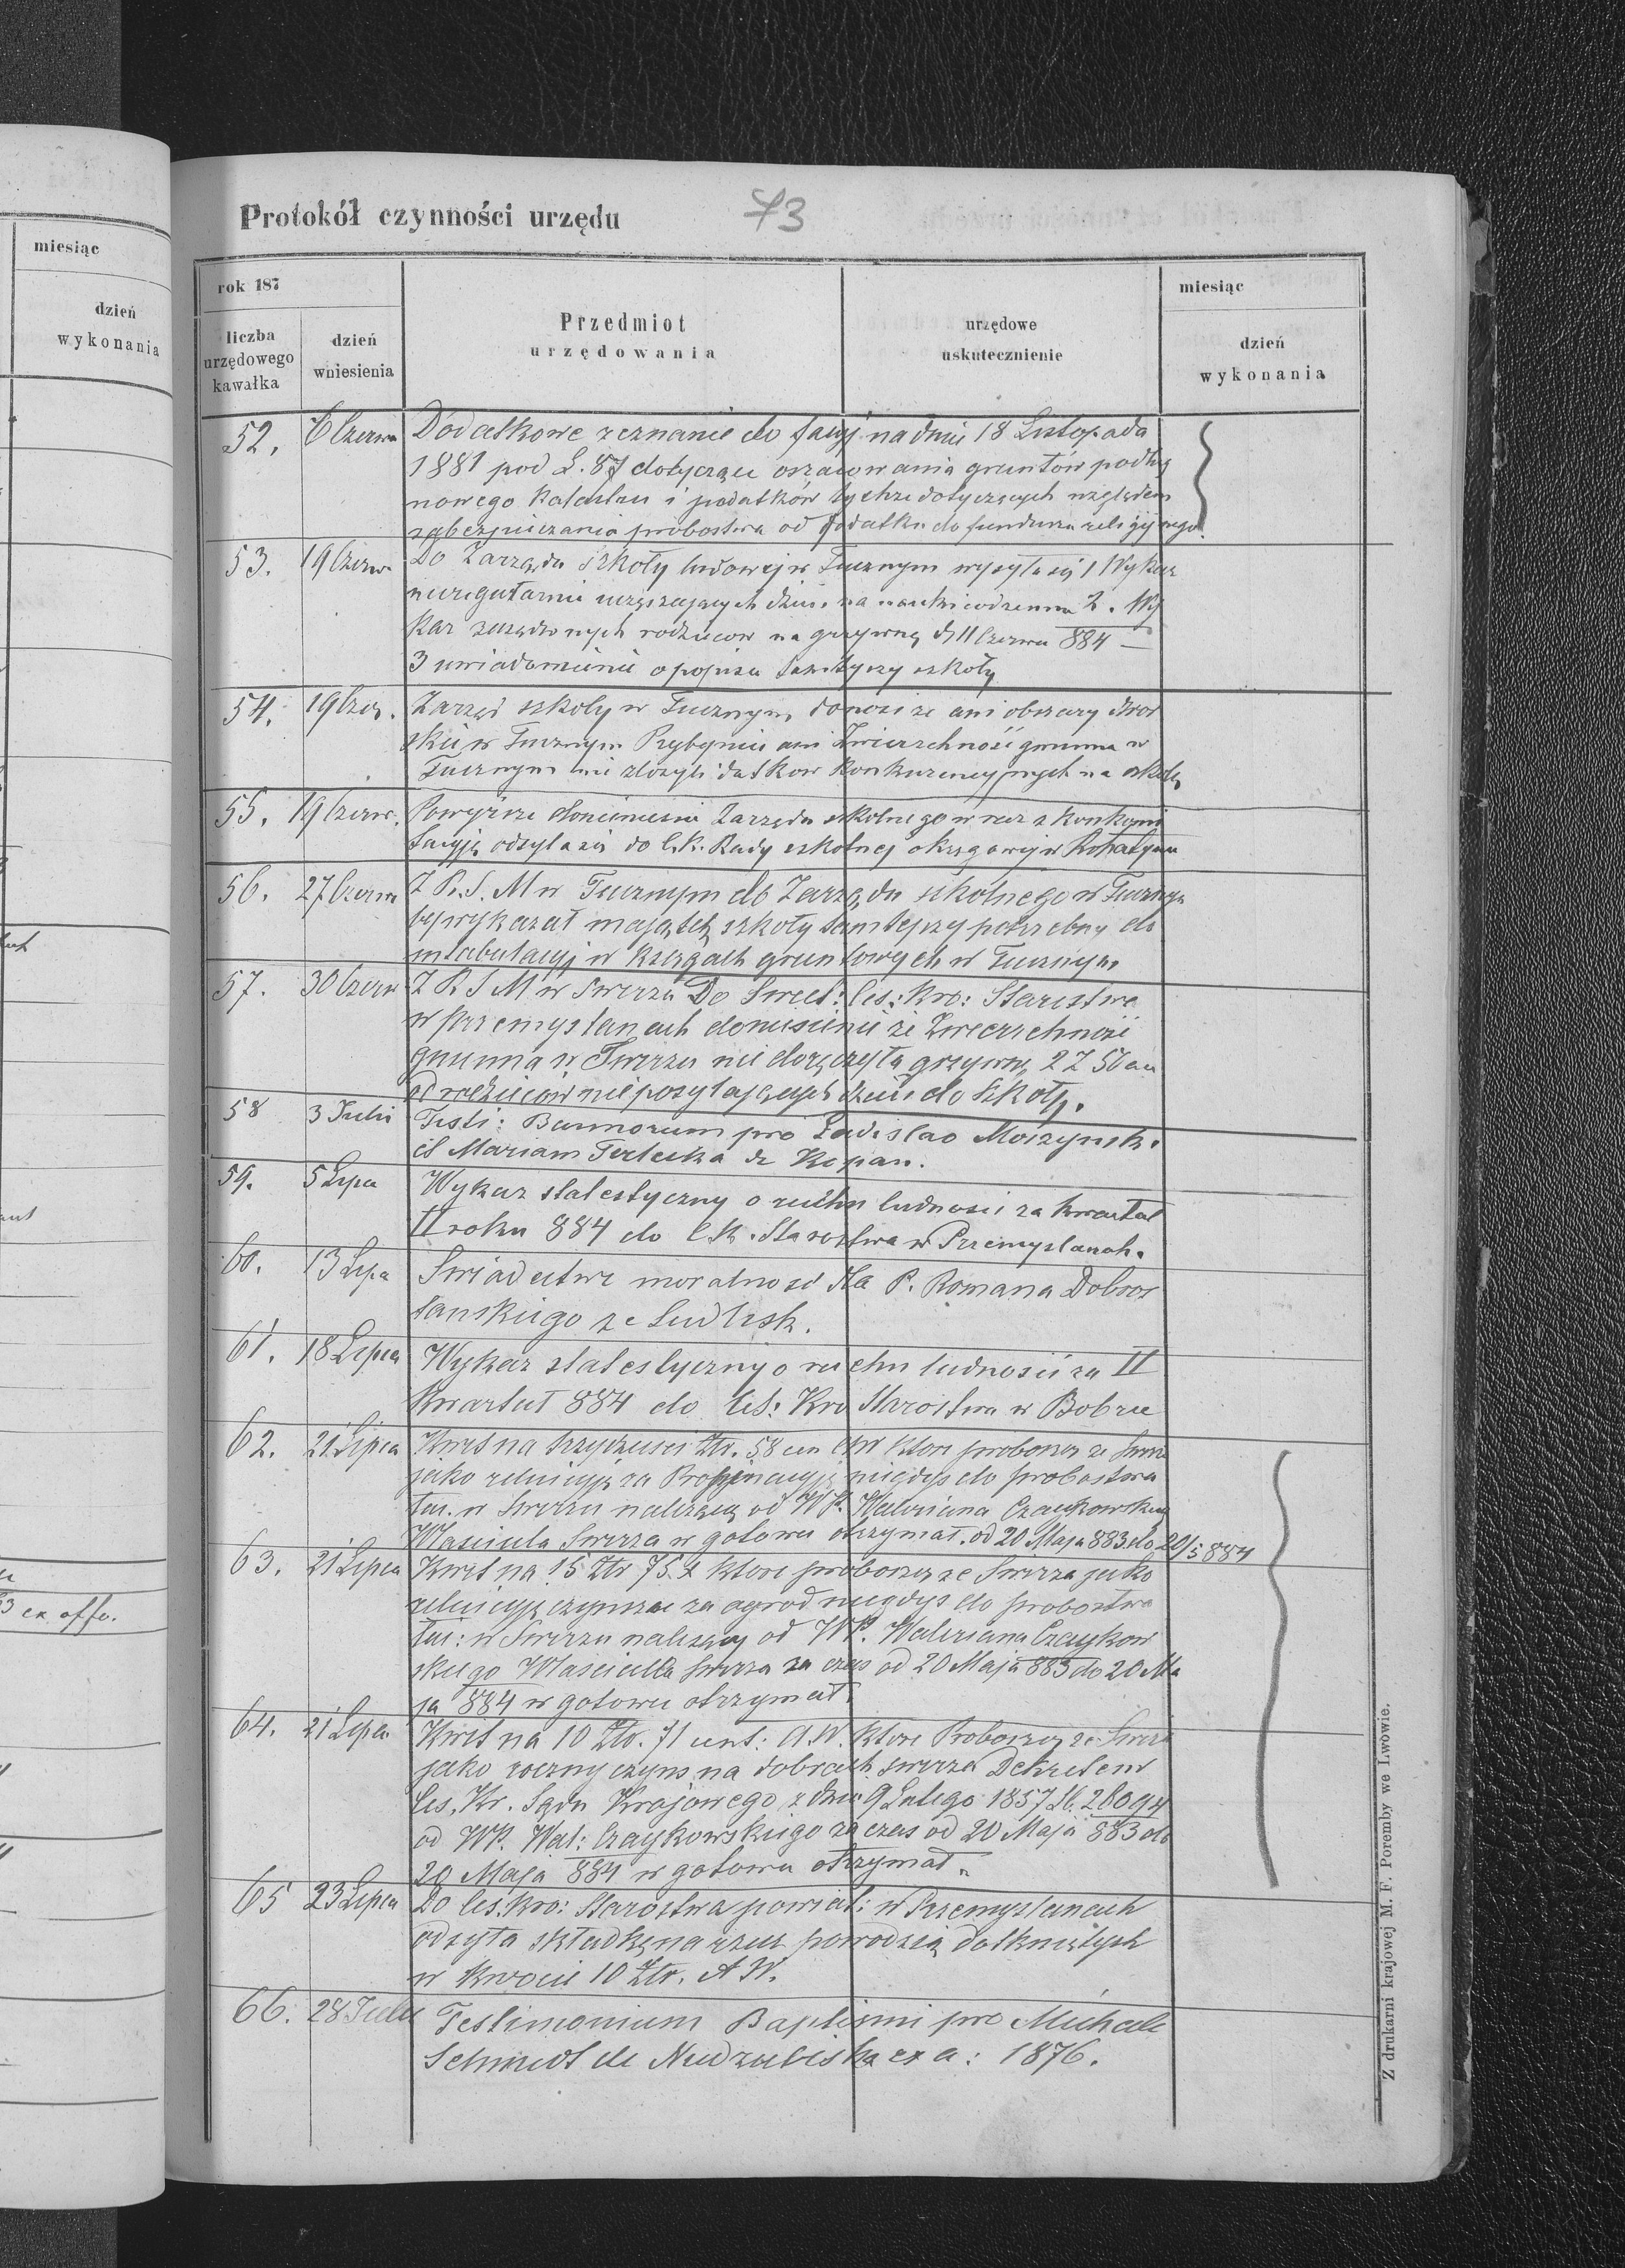 miesiąc
dzień
wykonania
ex offo.
Protokół czynności urzędu
73
rok 187
miesiąc
liczba
urzędowego
kawałka
dzień
wniesienia
Przedmiot
urzędowania
urzędowe
uskutecznienie
dzień
wykonania
52. 6 Czerwa Dodatkowe zeznanie do fasyj na dniu 18 Listopada
1881 pod L. 87 dotyczące oszacowania gruntów podług
nowego Katastru i podatków tychże dotyczących względem
zabezpieczania probostwa od dodatku do funduszu religijnego.
53. 19 Czerw. Do Zarządu szkoły ludowej w Tucznym wysyła się 1 Wykaz
nieregularnie uczęszczających dzieci na nauki codzienne 2. Wy
kaz zasądzonych rodziców na grzywnę d 11 Czerwca 884 —
3 uwiadomienie o popisie tamtejszy szkoły
54. 19 Czer. Zarząd szkoły w Tucznym donosi że ani obszary dwor
skie w Tucznym Pzybyniu ani Zwierzchność gminna w
Tucznym nie złożyli datkow konkurencyjnych na szkołę
55. 19 Czerw. Powyższe doniesienie Zarządu szkolnego w raz z konkomi
tacyję odsyła się do C.K. Rady szkolnej okręgowej w Rohatynie
56. 27 Czerwa Z R. S. M w Tucznym do Zarządu szkolnego w Tucznym
by wykazał majątek szkoły tamtejszy potrzebny do
intabulacyj w księgach gruntowych w Tucznym
57. 30 Czerw Z R S M w Swirzu Do Swiet: Ces: Kro: Starostwa
w Przemyslanach doniesienie że Zwierzchność
gminna w Swirzu nie doręczyła grzywny 2 Z 50 cn
od rodziców nieposyłających dzieci do szkoły.
58 3 Julii Testi: Bannorum pro Ladislao Moszynski
et Mariam Terlecka de Kopan.
59. 5 Lipca Wykaz statestyczny o ruchu ludnosci za kwartal
II roku 884 do C.K. Starostwa w Przemyslanach.
60. 13 Lipca Swiadectwo moralnosc dla P. Romana Dobros
łanskiego ze
61. 18 Lipca Wykaz statestyczny o ruchu ludnosci za II
Kwartał 884 do Ces: Kro Starostwa w Bobrce
62. 21 Lipca Kwit na Ztr. 58 cen AW ktore proboszcz ze Swirza
jako reluicyję za Propinacyję niegdys do probostwa
łac. w Swirzu należącą od WP. Waleriana Czaykowskiego
Wlasciciela Swirza w gotowce otrzymał. od 20 Maja 883 do 20/5 884
63. 21 Lipca Kwit na 15 Ztr 75. ktore proboszcz ze Swirza jako
reluicyję czynszu za ogrod niegdys do probostwa
łac: w Swirzu należący od WP. Waleriana Czaykow
skiego Wlasciciela Swirza za czas od 20 Maja 883 do 20 Ma
ja 884 w gotowce otrzymał.
64. 21 Lipca Kwit na 10 Ztr. 71 cent: A.W. ktore Proboszcz ze Swirza
jako roczny czynsz na dobrach Swirza Dekretem
Ces. Kr. Sądu Krajowego z dnia 9 Lutego 1857 Lb. 26094
od WP. Wal: Czaykowskiego za czas od 20 Maja 883 do
20 Maja 884 w gotowce otrzymał.
65 23 Lipca Do Ces. Kro: Starostwa powiat: w Przemyslanach
odsyła składkę na rzecz powodzią dotkniętych
w kwocie 10 Ztr. A W.
66. 28 Julii Testimonium Baptismi pro Michaele
Schmidt de Niedzieliska ex a: 1876.
Z drukarni krajowej M. F. Poremby we Lwowie.